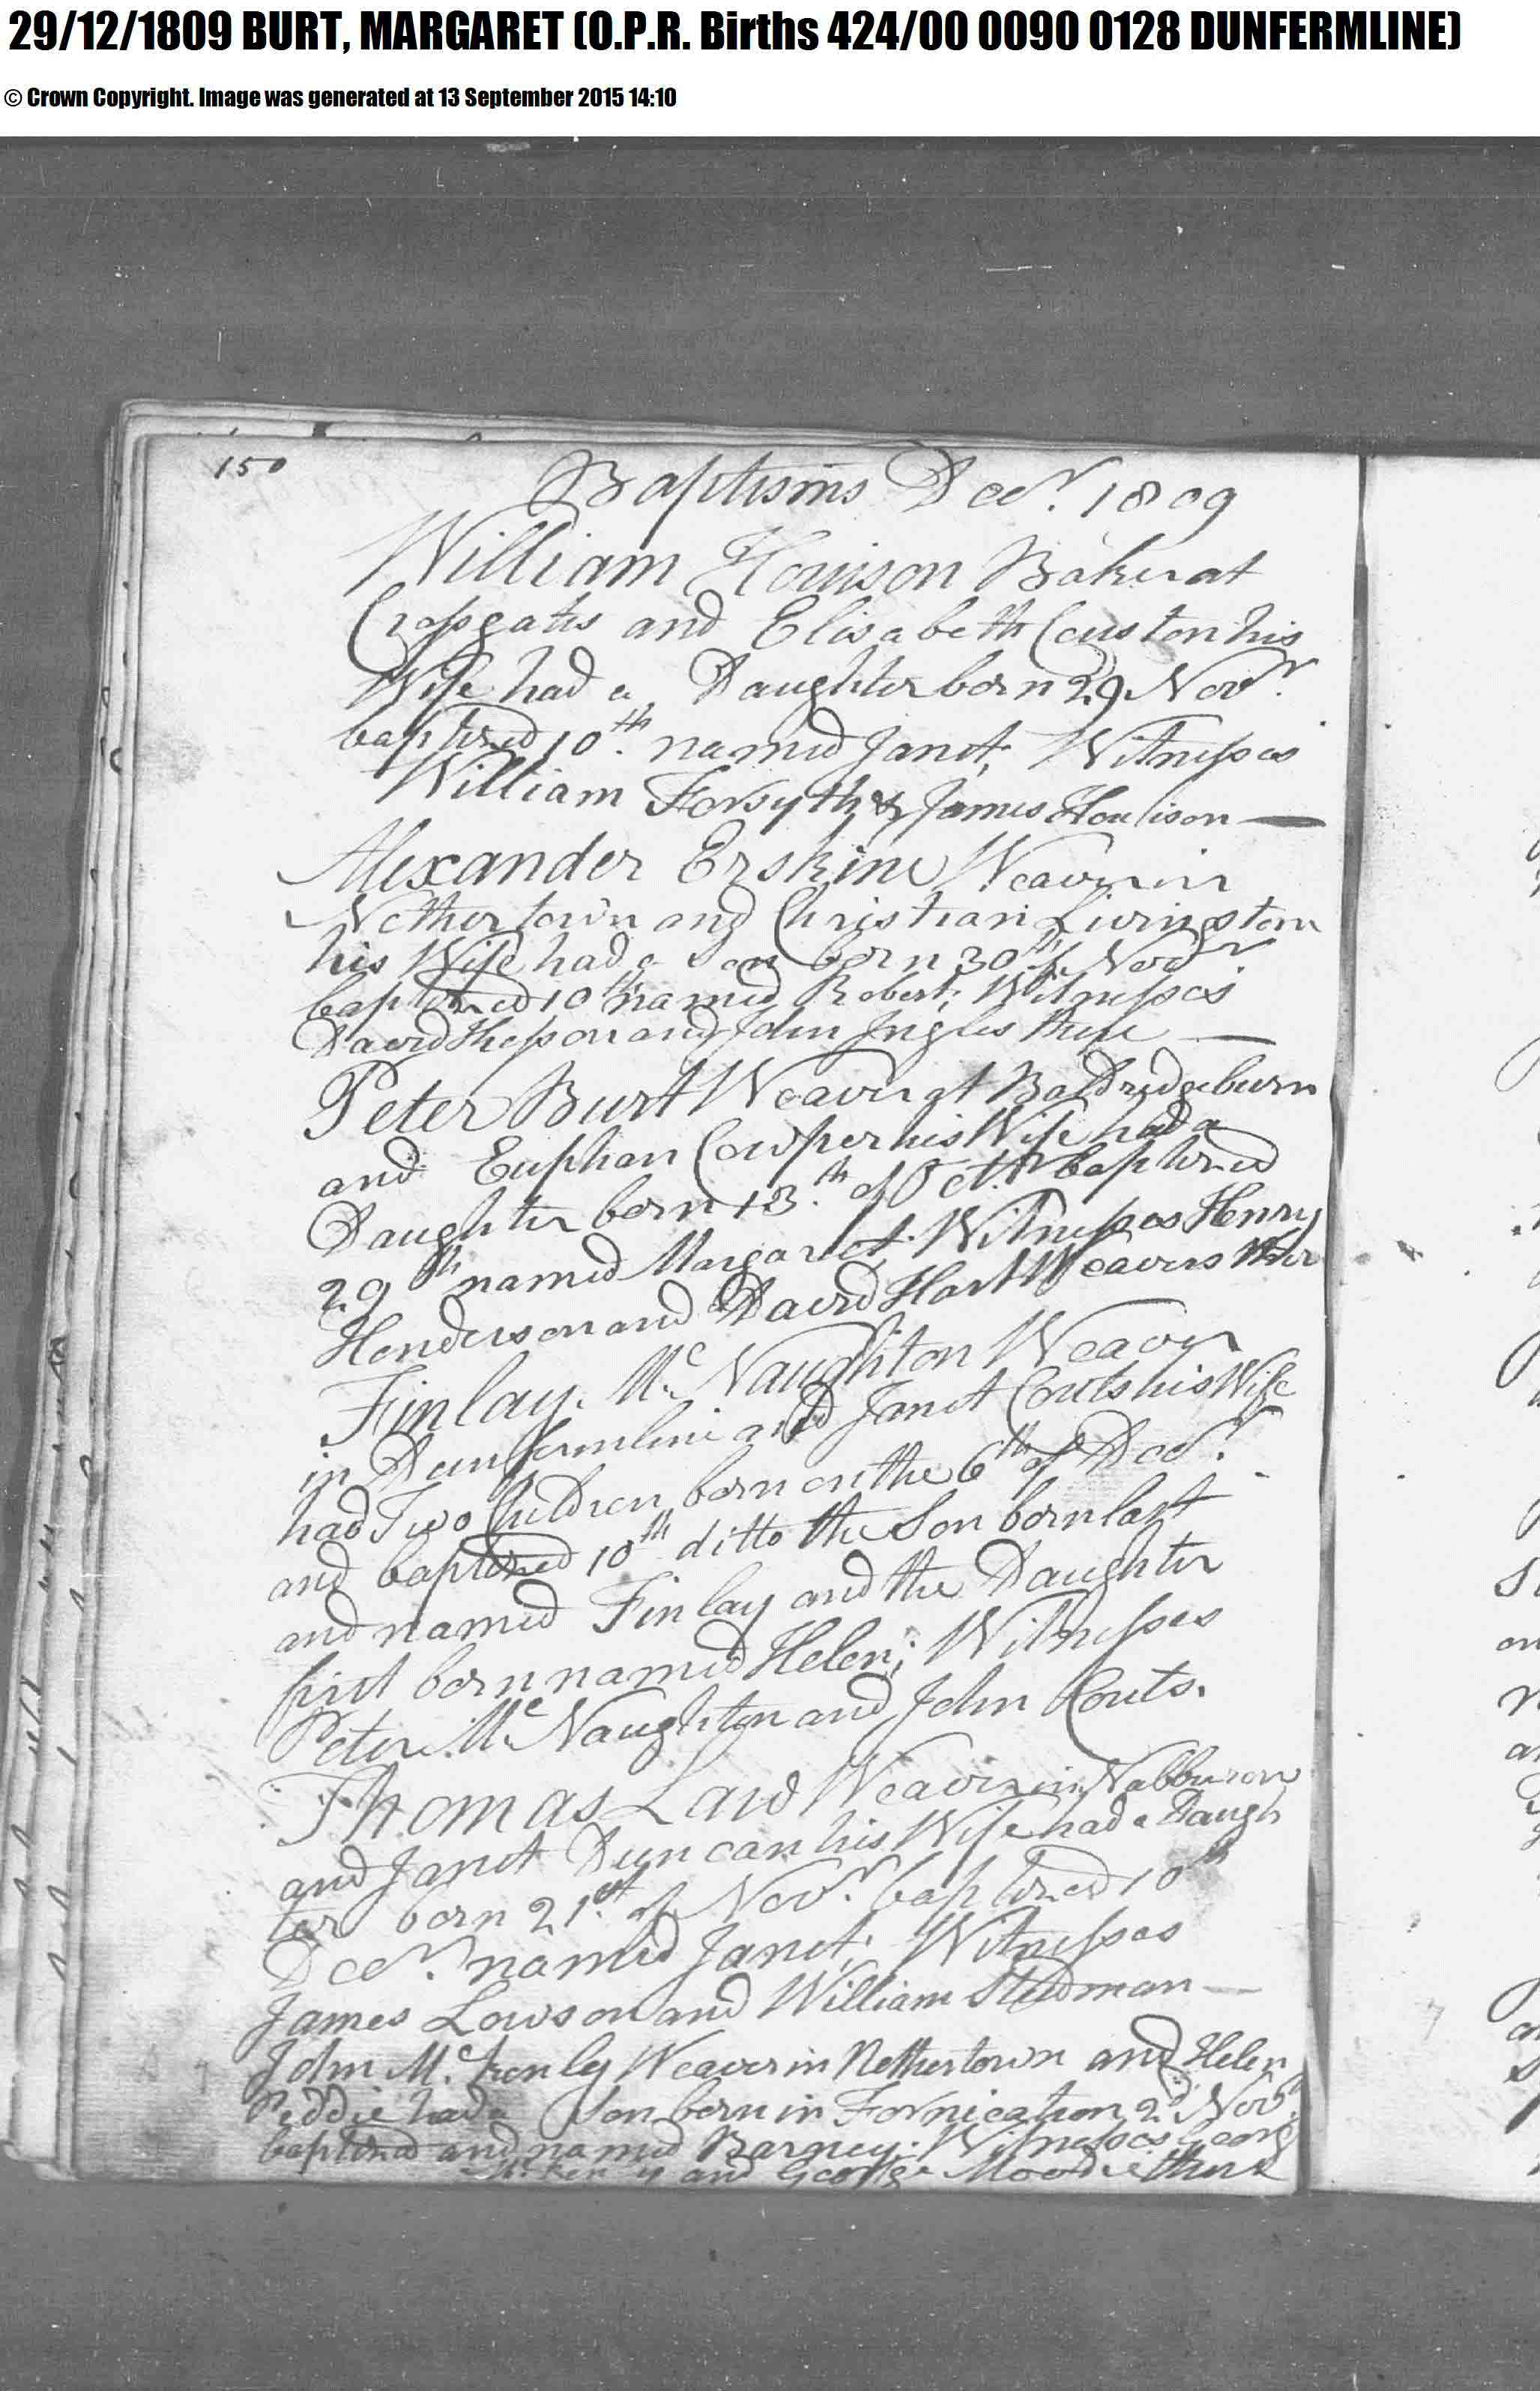 29/12/1809 BURT, MARGARET (O.P.R. Births 424/00 0090 0128 DUNFERMLINE)
© Crown Copyright. Image was generated at 13 September 2015 14:10
150
Baptisms Decr. 1809
William Houison Baker at
Crossgates and Elisabeth Couston his
Wife had a Daughter born 29 Novr.
baptized 10th named Janet; Witnesses
William Forsyth & James Houlison
Alexander Erskine Weaver in
Nethertown and Christian Livingston
his Wife had a Son born 30th Novr.
baptized 10th named Robert; Witnesses
David and John Ingles there
Peter Burt Weaver at Baldridgeburn
and Euphan Cowper his Wife had a
Daughter born 13th of Octr. baptized
29th named Margaret; Witnesses Henry
Henderson and David Hart Weavers ther
Finlay Mc Naughton Weaver
in Dunfermline and Janet Couts his Wife
had Two Children born on the 6th of Decr.
and baptized 10th ditto the Son born last
and named Finlay and the Daughter
first born named Helen; Witnesses
Peter Mc Naughton and John Couts.
Thomas Law Weaver in
and Janet Duncan his Wife had a Daugh
ter born 21st of Novr. baptized 10th
Decr. named Janet; Witnesses
James Lowson and William Stedman
John Mc Kenly Weaver in Nethertown and Helen
Peddie had a Son born in Fornication 2d Novr.
baptized and named Barney; Witnesses Georg
Mc Kenly and George Moodie there